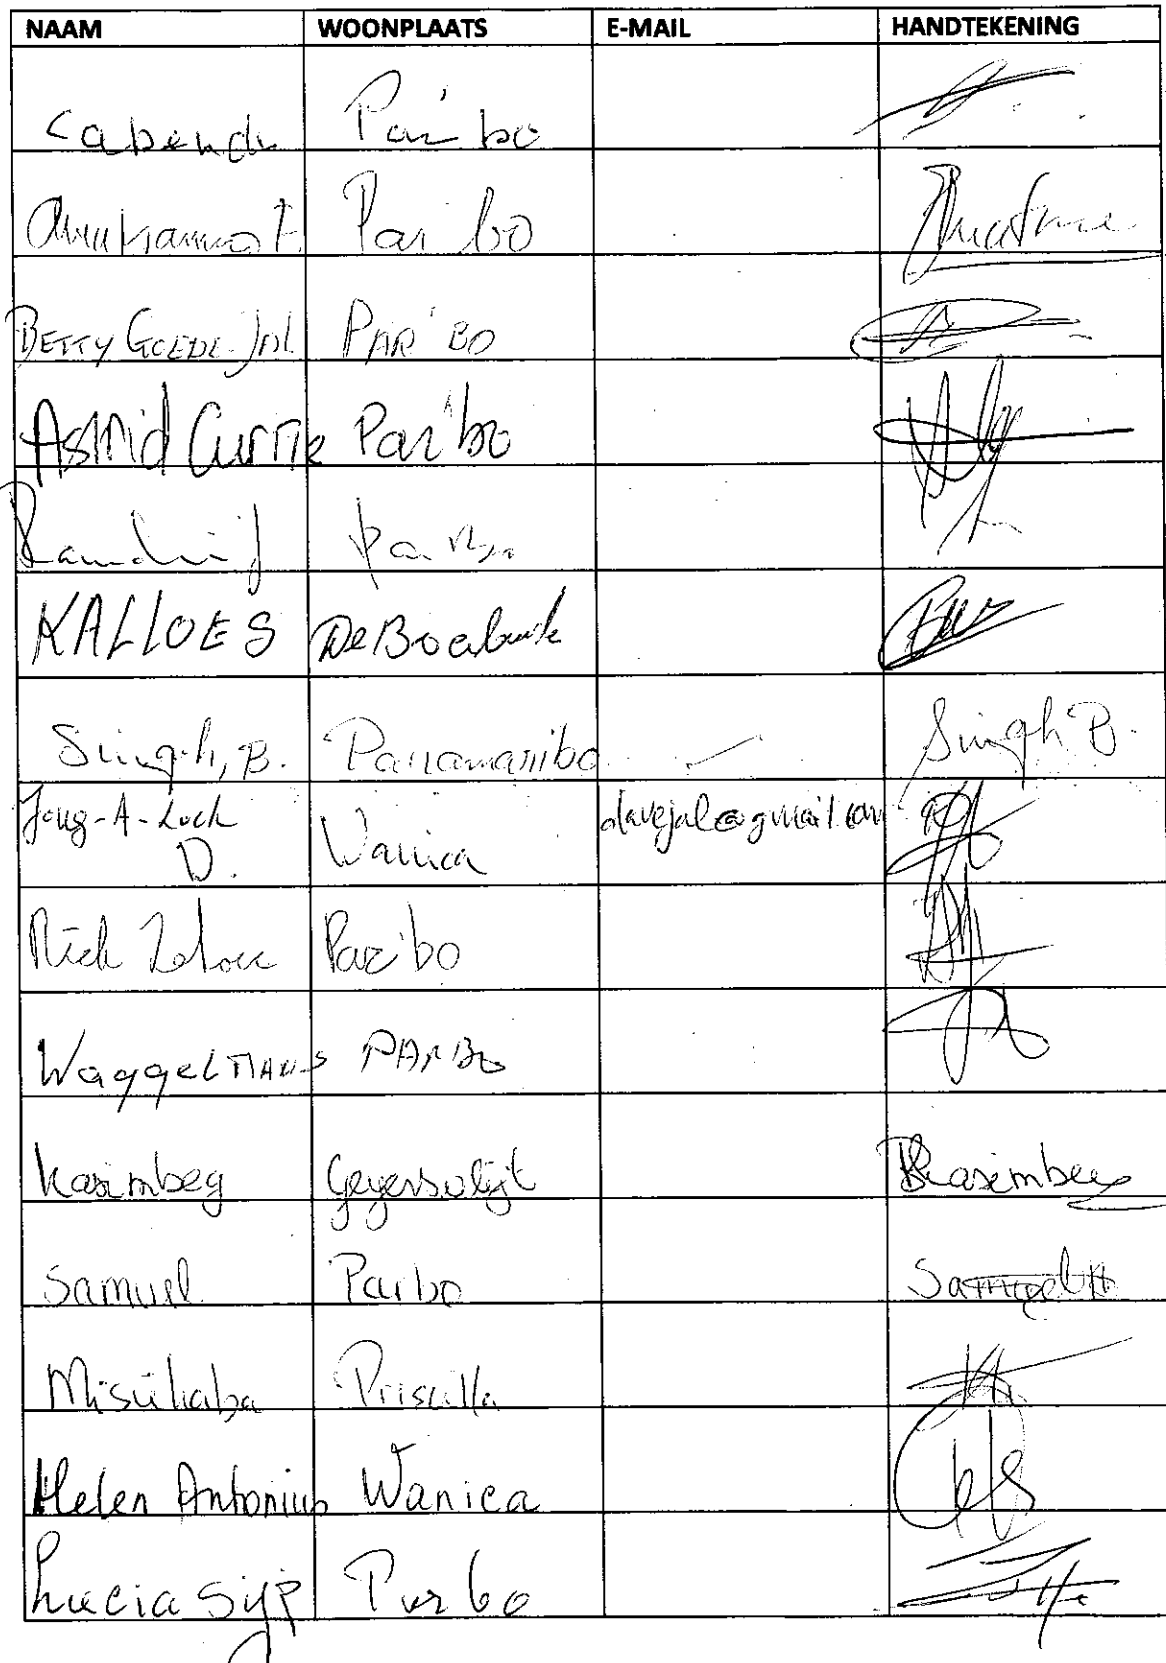 NAAM WOONPLAATS E-MAIL HANDTEKENING
Cabendu Par'bo
Par'bo
BETTY GOEDE JOL PAR'BO
Astrid Currie Par'bo
KALLOES De Boerbuurt
Singh, B. Parramaribo Singh B.
Jong-A-Lock
D. Wanica davejal@gmail.com
Rick Par'bo
WaggelMANS PARBO
Kasimbeg Geyersvlijt Kasimbeg
Samuel Parbo Samuel
Misiekaba Priscilla
Helen Antonius Wanica
Lucia Sijp Parbo